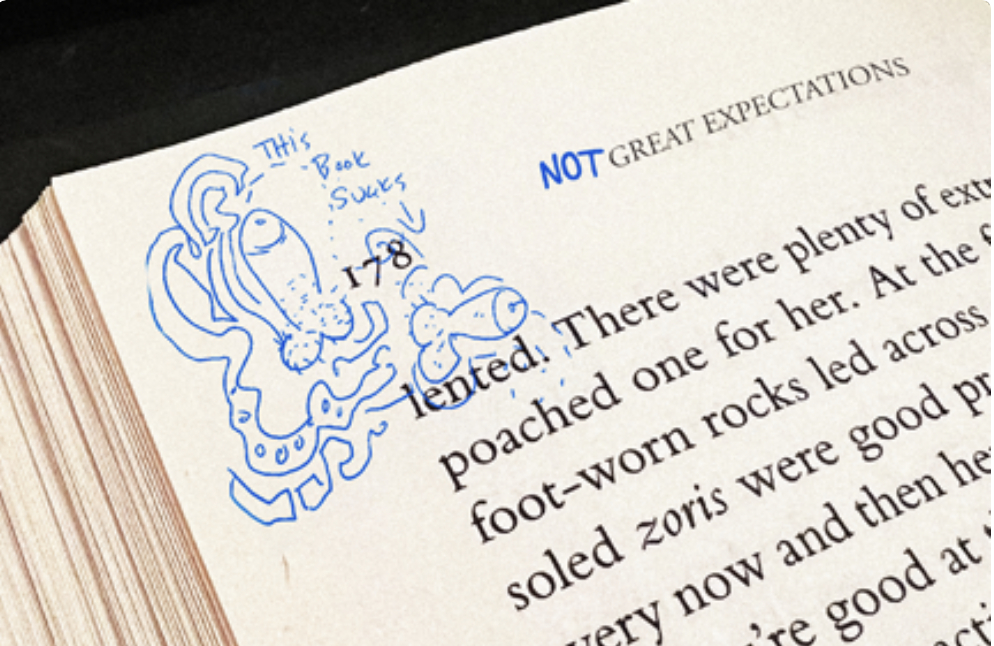 NOT GREAT EXPECTATIONS
THis
Book
Sucks
178
lented. There were plenty of extr
poached one for her. At the f
foot-worn rocks led across
soled zoris were good pr
very now and then he
're good at t